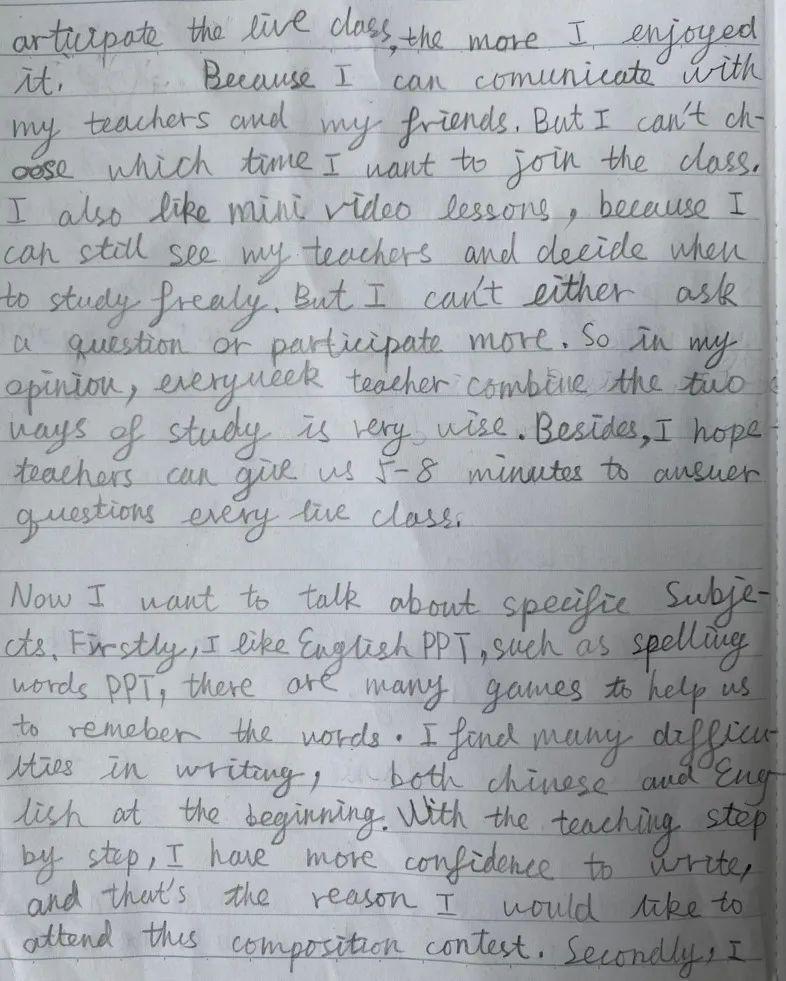 articipate the live class, the more I enjoyed
it. Because I can comunicate with
my teachers and my friends. But I can't ch-
oose which time I want to join the class.
I also like mini video lessons, because I
can still see my teachers and decide when
to study frealy. But I can't either ask
a question or participate more. So in my
opinion, everyweek teacher combine the two
ways of study is very wise. Besides, I hope
teachers can give us 5-8 minutes to answer
questions every live class.
Now I want to talk about specific Subje-
cts. Firstly, I like English PPT, such as spelling
words PPT, there are many games to help us
to remeber the words. I find many difficu-
lties in writing, both chinese and Eng
lish at the beginning. With the teaching step
by step, I have more confidence to write,
and that's the reason I would like to
attend this composition contest. Secondly, I